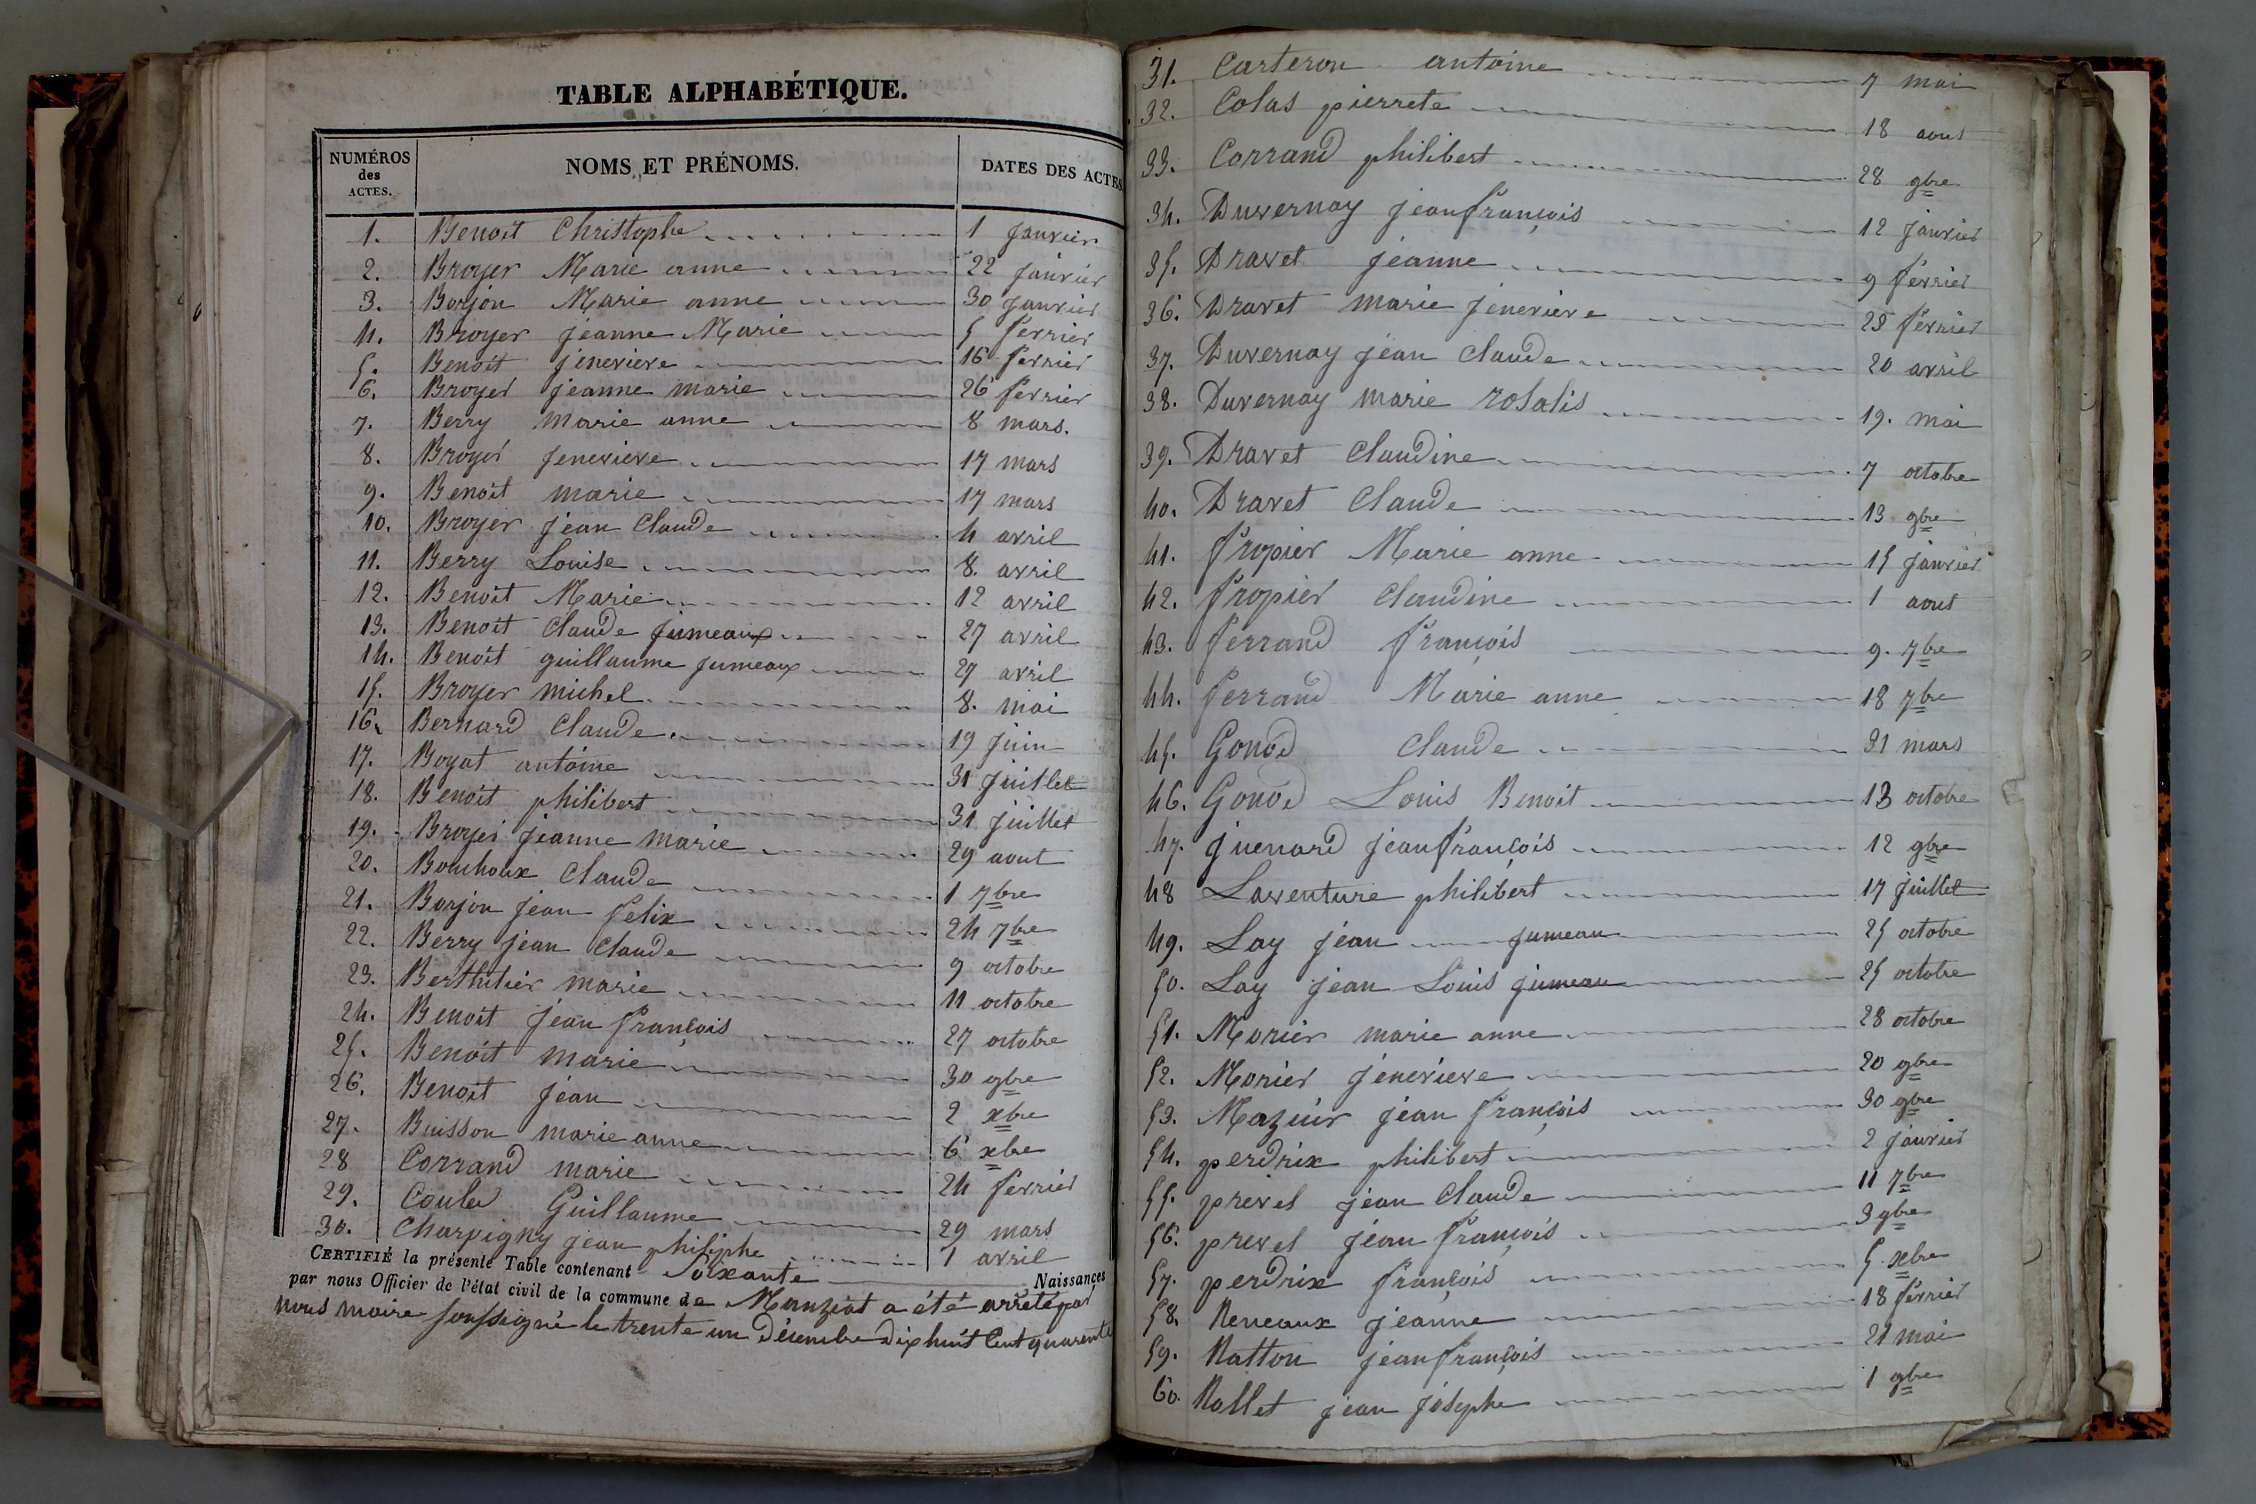 TABLE ALPHABÉTIQUE.
NUMÉROS des ACTES. NOMS ET PRÉNOMS. DATES DES ACTES
1. Benoit Christophe 1 janvier
2. Broyer Marie anne 22 janvier
3. Borjon Marie anne 30 janvier
4. Broyer jeanne Marie 5 fevrier
5. Benoit jenevieve 16 fevrier
6. Broyer jeanne marie 26 fevrier
7. Berry marie anne 8 mars.
8. Broyer jenevieve 17 mars
9. Benoit marie 17 mars
10. Broyer jean Claude 4 avril
11. Berry Louise 8. avril
12. Benoit Marie 12 avril
13. Benoit Claude jumeaux 27 avril
14. Benoit guillaume jumeaux 27 avril
15. Broyer michel 8. mai
16. Bernard Claude 19 juin
17. Boyat antoine 31 juillet
18. Benoit philibert 31 juillet
19. Broyer jeanne marie 29 aout
20. Bouchoux Claude 1 7bre
21. Borjon jean felix 24 7bre
22. Berry jean Claude 9 octobre
23. Berthilier marie 11 octobre
24. Benoit jean françois 27 octobre
25. Benoit marie 30 9bre
26. Benoit jean 2 xbre
27. Buisson marie anne 6 xbre
28 Corrand marie 24 fevrier
29. Guillaume 29 mars
30. Charvigny jean philiphe 1 avril
CERTIFIÉ la présente Table contenant Soixante Naissances
par nous Officier de l'état civil de la commune de Manziat a été arrêté par
nous maire soussigné le trente un Décembre dix huit Cent quarante
31. Carteron antoine 7 mai
32. Colas pierrete 18 aout
33. Corrand philibert 28 9bre
34. Duvernay jean françois 12 janvier
35. Dravet jeanne 9 fevrier
36. Dravet marie jenevieve 25 fevrier
37. Duvernay jean Claude 20 avril
38. Duvernay marie rosalis 19. mai
39. Dravet Claudine 7 octobre
40. Dravet Claude 13 9bre
41. fropier Marie anne 15 janvier
42. fropier Claudine 1 aout
43. ferrand françois 9. 7bre
44. ferrand Marie anne 18 7bre
45. Gonod Claude 31 mars
46. Gonod Louis Benoit 13 octobre
47. guenard jean françois 12 9bre
48 Laventure philibert 17 juillet
49. Lay jean jumeau 25 octobre
50. Lay jean Louis jumeau 25 octobre
51. Morier marie anne 28 octobre
52. Morier jenevieve 20 9bre
53. Mazuir jean françois 30 9bre
54. perdrix philibert 2 janvier
55. prevel jean Claude 11 7bre
56. prevel jean françois 3 9bre
57. perdrix françois 5 xbre
58. Reneaux jeanne 18 fevrier
59. Ratton jean françois 21 mai
60. Rollet jean joseph 1 9bre